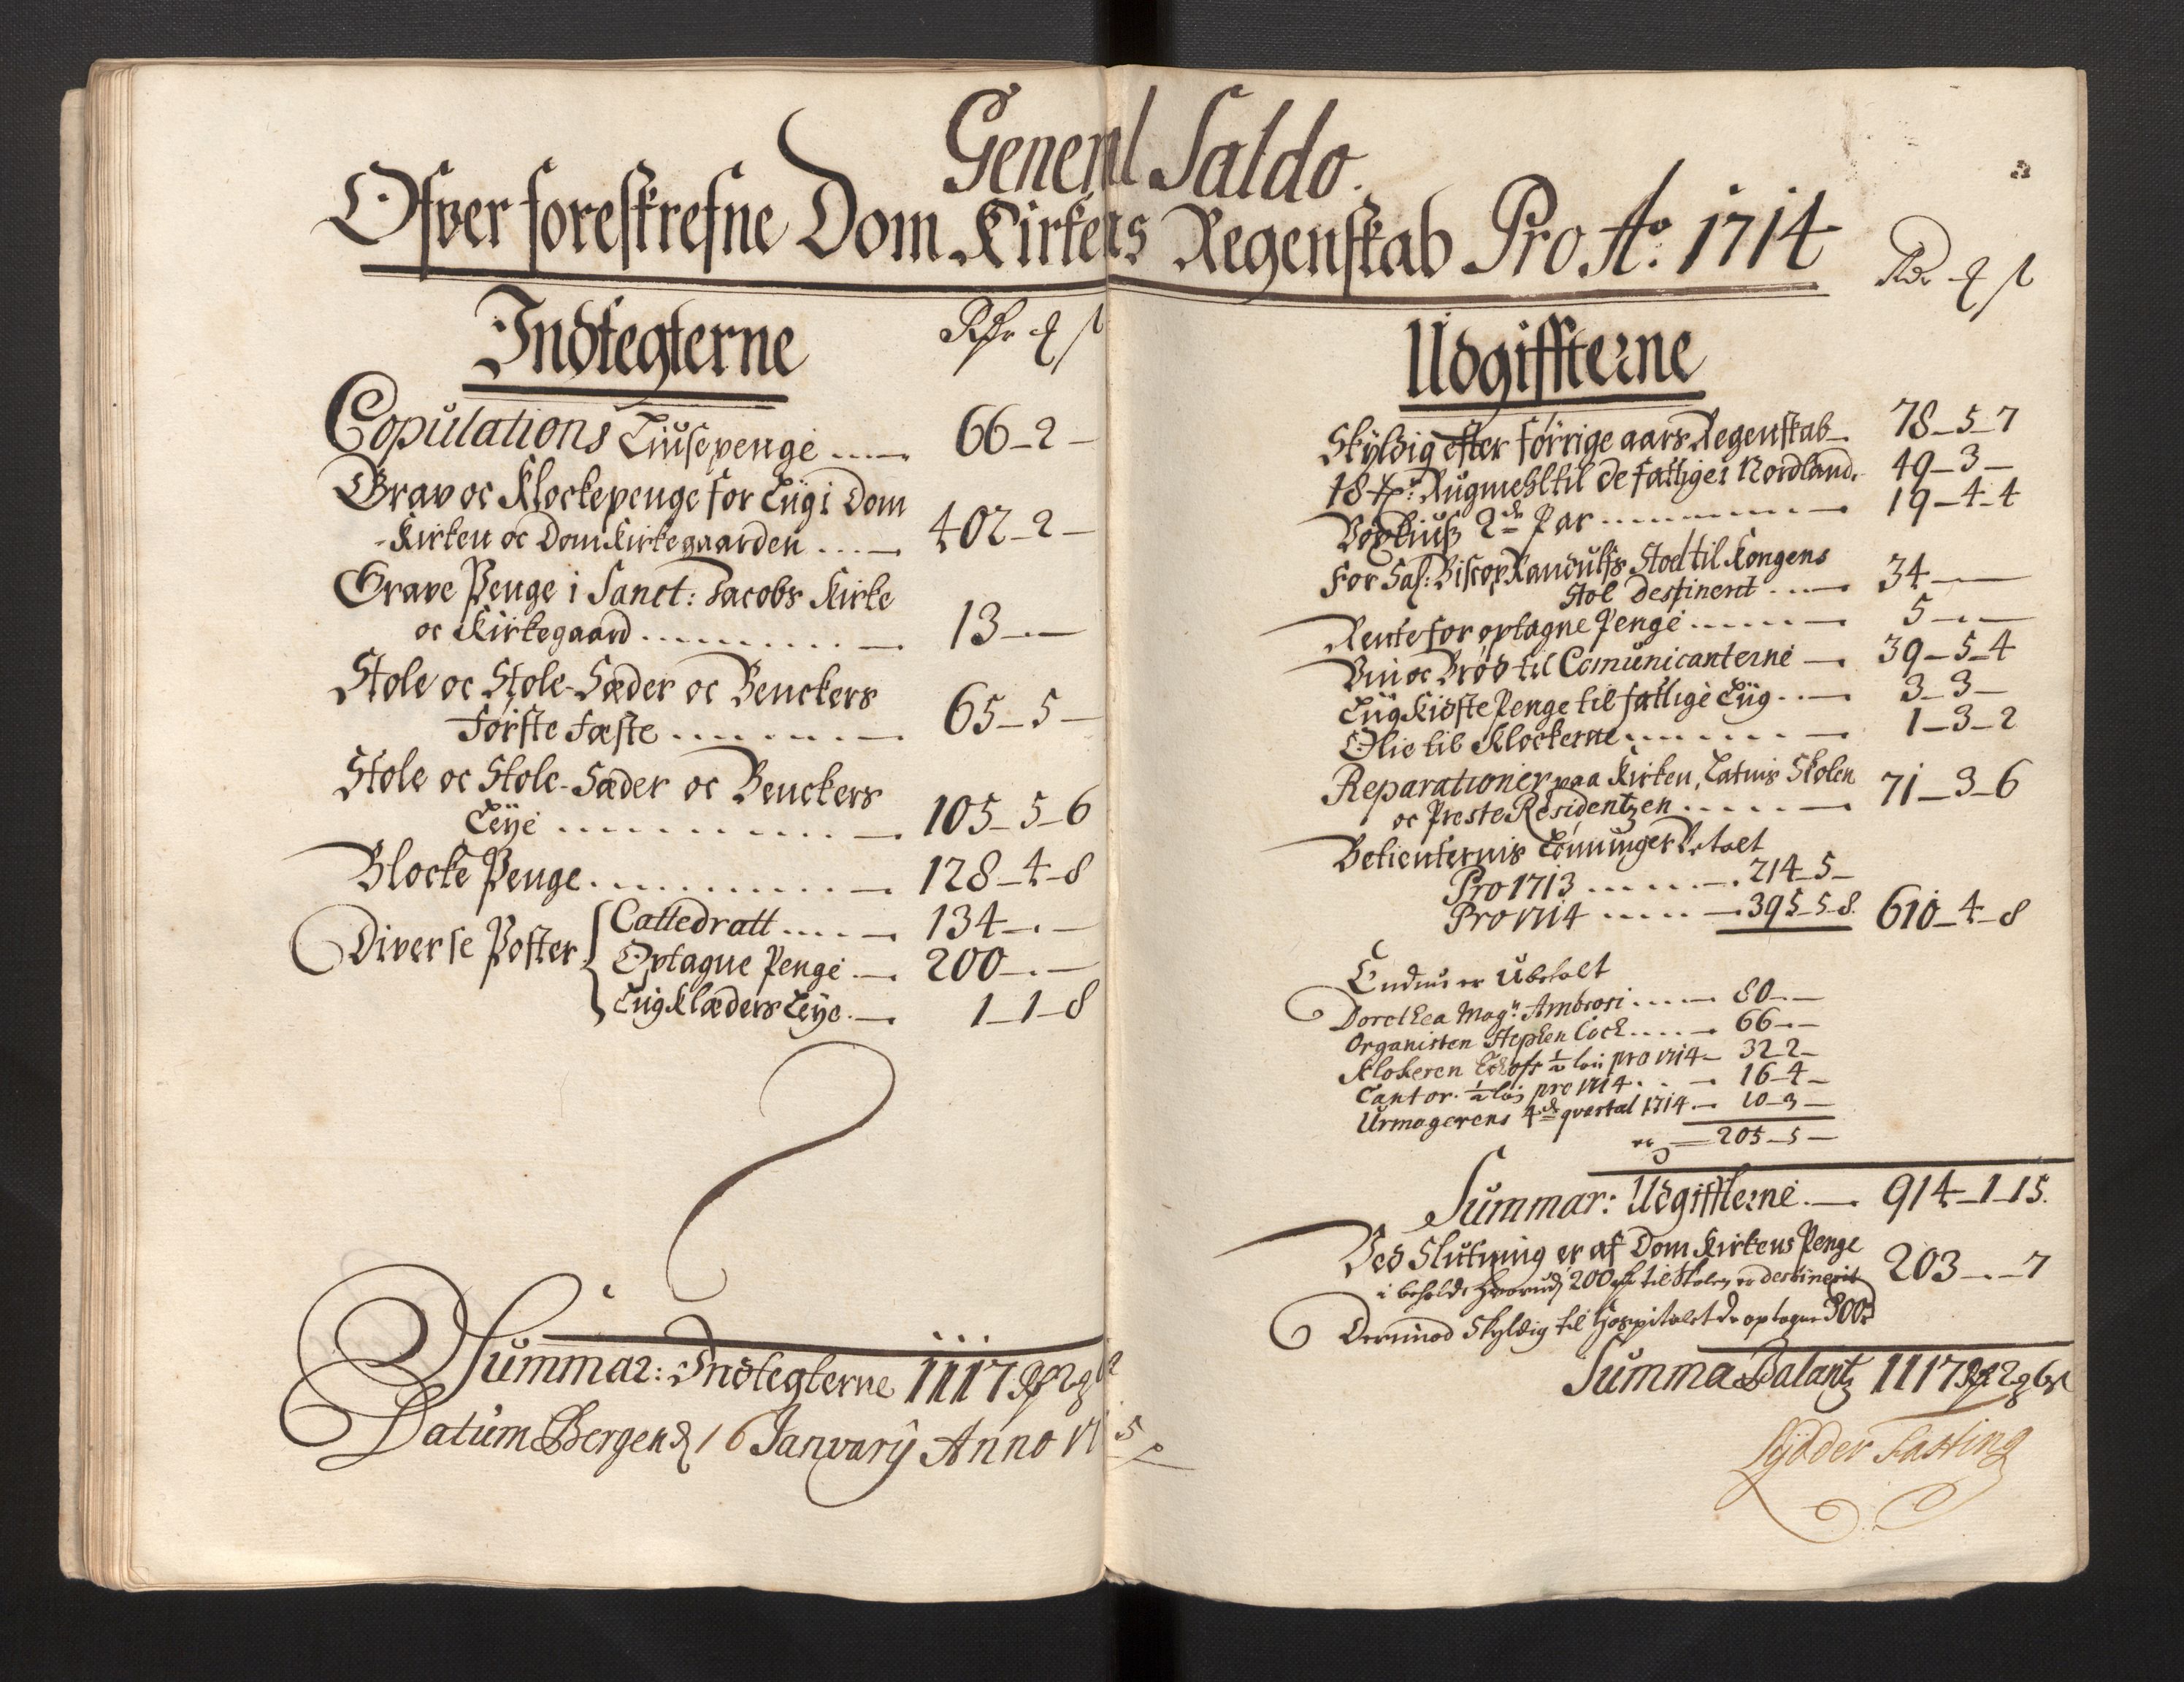 General Saldo.
Ofver foreskrefne Dom Kirkens Regenskab Pro Ao: 1714
Indtegterne
Copulations Liuse penge 66-2-
Grav oc Klockepenge for Liig i Dom
Kirken oc Dom Kirkegaarden 402-2-
Grave Penge i Sanct: Jacobs Kirke
oc Kirkegaard 13-.-
Stole oc Stole-Sæder oc Benckers
Første Fæste 65-5-
Stole oc Stole-Sæder oc Benckers
Leÿe 105-5-6
Blocke Penge 128-4-8
Diverse Poster
Cattedratt 134-.-
Optagne Penge 200-.-
Liig Klæders Leÿe 1-1-8
Summar: Indtegterne 1117
Datum Bergen d 16 Januarÿ Anno 1715
Rdr
Udgiffterne
Skÿldig efter Forrige aars Regenskab 78-5-7
18 Rugmehl til de fattige i Nordland. 49-3-
Voxliuß 2de Par 19-4-4
For Sal: Biscop Randulfs Stoel til Kongens
Stol destinerit 34
Rente for optagne Penge 5-.-
Vin oc Brød til Comunicanterne 39-5-4
Liig Kiste Penge til fattige Liig 3-3-
Olie til Klockerne 1-3-2
Reparationer paa Kirken, Latins Skolen
oc Preste Residentzen 71-3-6
Betienternis Lønninger Betalt
Pro 1713 214-5-
Pro 1714 395-5-8. 610-4-8
Endnu er Ubetalt
Dorethea Magr: Ambrosi 80.-
Organisten Stephen Cock 66.-
Klokeren ½ løn pro 1714 32 2-
Cantor ½ løn pro 1714 16-4-
Urmagerens 4de qvartal 1714 10-3-
er 205-5-
Summar: Udgiffterne 914-1-15.
Ved Slutning er af Dom Kirkens Penge
i beholdt hvorud 200 til Stolen er destinerit 203-.-7
Derimod Skÿldig til Hospitalet de optagne 300
Summa Balantz 1117 2 6
Lÿdder Fasting